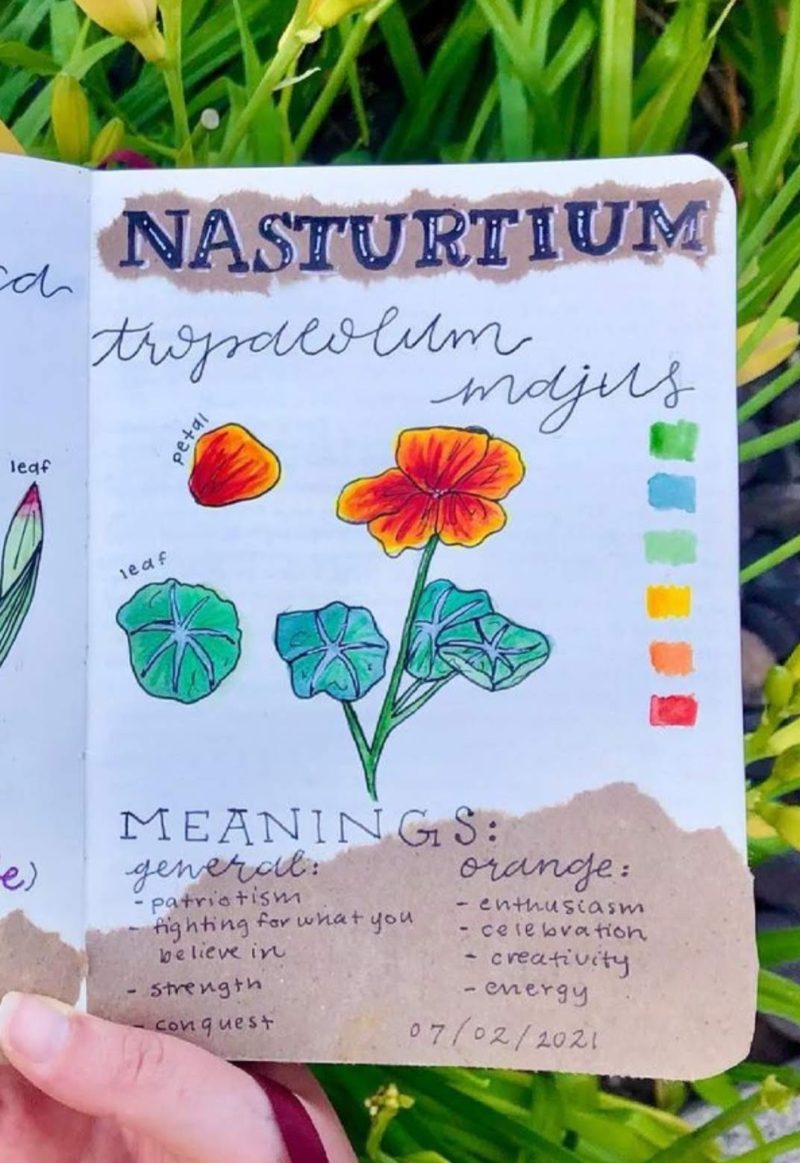 NASTURTIUM
tropaeolum
majus
petal
leaf
leaf
MEANINGS:
general:
- patriotism
- fighting for what you
believe in
- strength
- conquest
orange:
- enthusiasm
- celebration
- creativity
- energy
07/02/2021